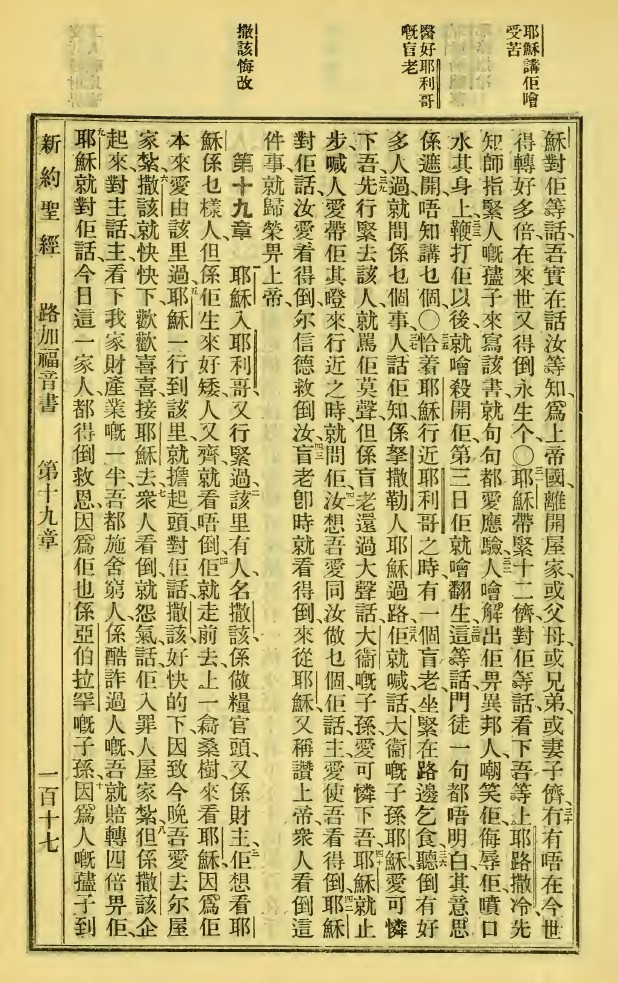 耶穌講佢噲
受苦
醫好耶利哥
嘅盲老
撒該悔改
穌對佢等話、吾實在話汝等知、爲上帝國、離開屋家、或父母、或兄弟、或妻子儕、冇有唔在今世
得轉好多倍、在來世又得倒永生个、〇耶穌帶緊十二儕、對佢等話、看下吾等上耶路撒冷、先
知師指緊人嘅孻子來寫該書、就句句都愛應驗、人噲解出佢畀異邦人、嘲笑佢、侮辱佢、噴口
水其身上、鞭打佢、以後就噲殺開佢、第三日佢就噲翻生、這等話、門徒一句都唔明白、其意思
係遮開、唔知講乜個、〇恰着耶穌行近耶利哥之時、有一個盲老、坐緊在路邊乞食、聽倒有好
多人過、就問係乜個事、人話佢知、係拏撒勒人耶穌過路、佢就喊話、大衞嘅子孫耶穌、愛可憐
下吾、先行緊去該人、就罵佢莫聲、但係盲老還過大聲話、大衞嘅子孫、愛可憐下吾、耶穌就止
步、喊人愛帶佢其𨅝來、行近之時、就問佢、汝想吾愛同汝做乜個、佢話、主愛使吾看得倒、耶穌
對佢話、汝愛看得倒、尔信德救倒汝、盲老卽時就看得倒、來從耶穌、又稱讚上帝、衆人看倒這
件事、就歸榮畀上帝、
第十九章 耶穌入耶利哥、又行緊過、該里有人名撒該、係做糧官頭、又係財主、佢想看耶
穌係乜樣人、但係佢生來好矮、人又齊、就看唔倒、佢就走前去、上一喬桑樹來看耶穌、因爲佢
本來愛由該里過、耶穌一行到該里、就擔起頭對佢話、撒該好快的下、因致今晚吾愛去尔屋
家紮、撒該就快快下、歡歡喜喜接耶穌去、衆人看倒就怨氣話、佢入罪人屋家紮、但係撒該企
起來、對主話、主看下、我家財產業嘅一半、吾都施舍窮人、係酷詐過人嘅、吾就賠轉四倍畀佢、
耶穌就對佢話、今日這一家人都得倒救恩、因爲佢也係亞伯拉罕嘅子孫、因爲人嘅孻子到
新約聖經 路加福音書 第十九章 一百十七